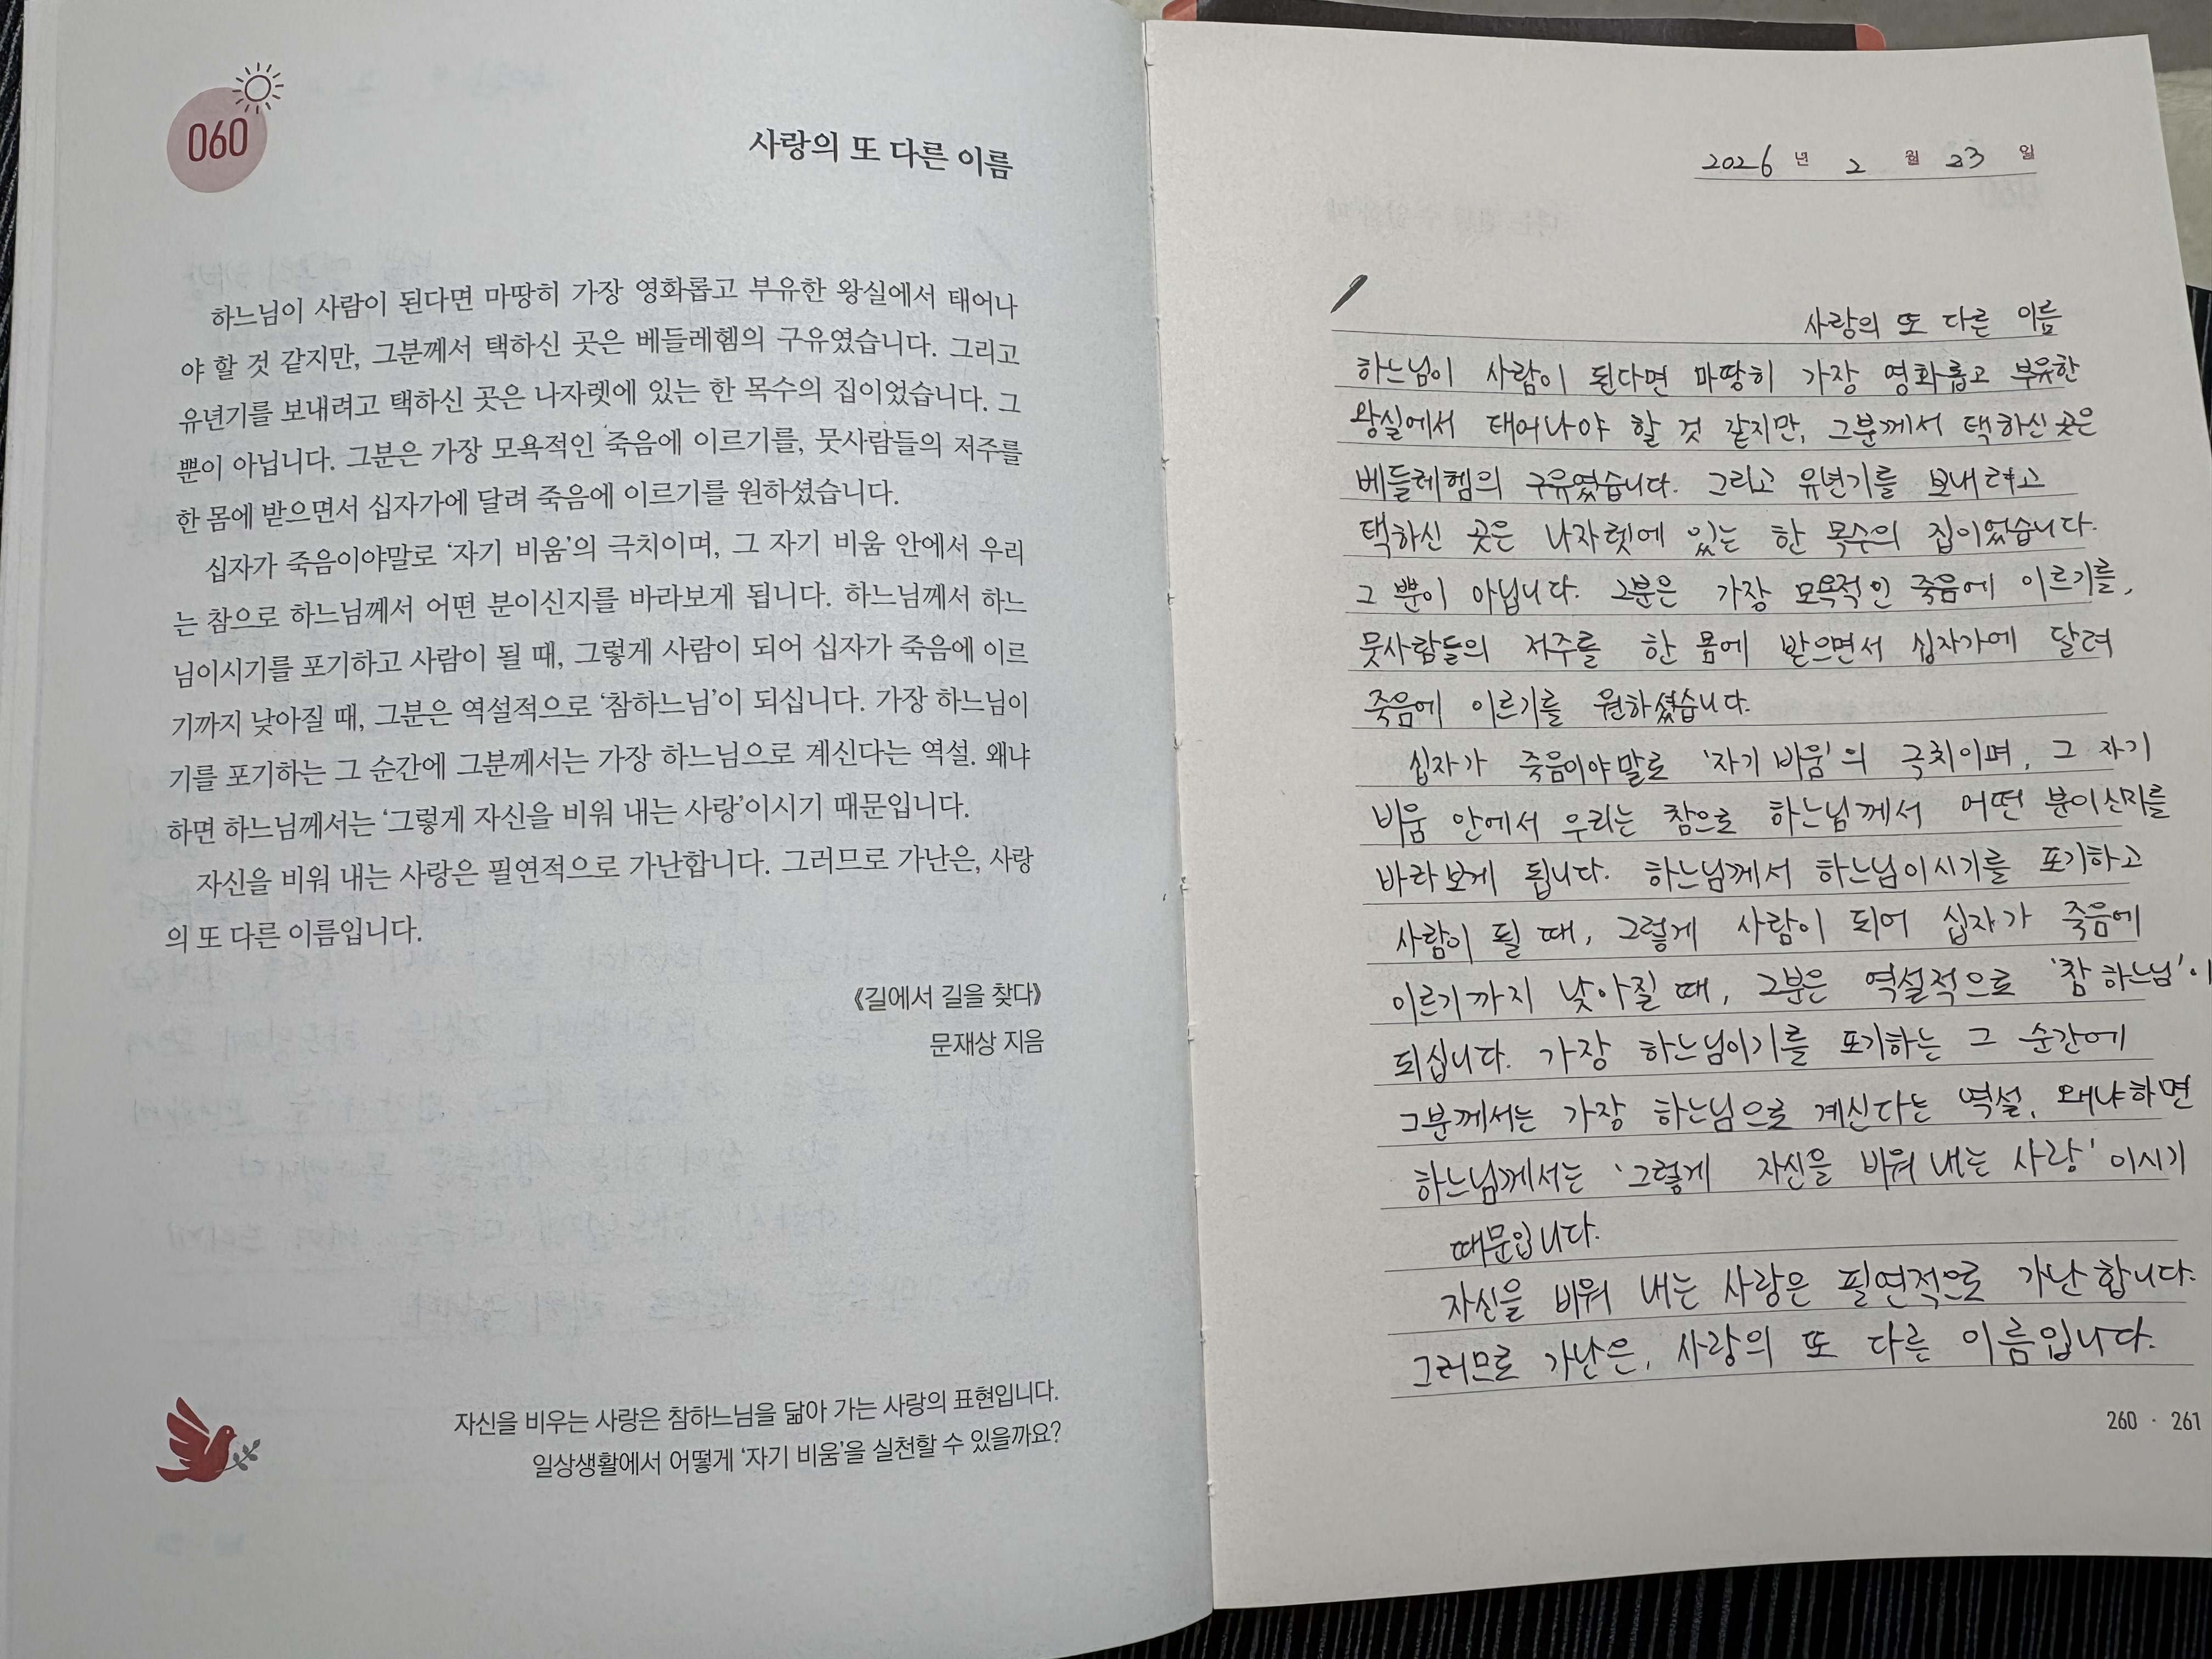 060
사랑의 또 다른 이름
하느님이 사람이 된다면 마땅히 가장 영화롭고 부유한 왕실에서 태어나
야 할 것 같지만, 그분께서 택하신 곳은 베들레헴의 구유였습니다. 그리고
유년기를 보내려고 택하신 곳은 나자렛에 있는 한 목수의 집이었습니다. 그
뿐이 아닙니다. 그분은 가장 모욕적인 죽음에 이르기를, 뭇사람들의 저주를
한 몸에 받으면서 십자가에 달려 죽음에 이르기를 원하셨습니다.
십자가 죽음이야말로 ‘자기 비움’의 극치이며, 그 자기 비움 안에서 우리
는 참으로 하느님께서 어떤 분이신지를 바라보게 됩니다. 하느님께서 하느
님이시기를 포기하고 사람이 될 때, 그렇게 사람이 되어 십자가 죽음에 이르
기까지 낮아질 때, 그분은 역설적으로 ‘참하느님’이 되십니다. 가장 하느님이
기를 포기하는 그 순간에 그분께서는 가장 하느님으로 계신다는 역설. 왜냐
하면 하느님께서는 ‘그렇게 자신을 비워 내는 사랑’이시기 때문입니다.
자신을 비워 내는 사랑은 필연적으로 가난합니다. 그러므로 가난은, 사랑
의 또 다른 이름입니다.
《길에서 길을 찾다》
문재상 지음
자신을 비우는 사랑은 참하느님을 닮아 가는 사랑의 표현입니다.
일상생활에서 어떻게 ‘자기 비움’을 실천할 수 있을까요?
2026 년 2 월 23 일
사랑의 또 다른 이름
하느님이 사람이 된다면 마땅히 가장 영화롭고 부유한
왕실에서 태어나야 할 것 같지만, 그분께서 택하신 곳은
베들레헴의 구유였습니다. 그리고 유년기를 보내려고
택하신 곳은 나자렛에 있는 한 목수의 집이었습니다.
그 뿐이 아닙니다. 그분은 가장 모욕적인 죽음에 이르기를,
뭇사람들의 저주를 한 몸에 받으면서 십자가에 달려
죽음에 이르기를 원하셨습니다.
십자가 죽음이야말로 '자기 비움'의 극치이며, 그 자기
비움 안에서 우리는 참으로 하느님께서 어떤 분이신지를
바라보게 됩니다. 하느님께서 하느님이시기를 포기하고
사람이 될 때, 그렇게 사람이 되어 십자가 죽음에
이르기까지 낮아질 때, 그분은 역설적으로 '참하느님'이
되십니다. 가장 하느님이기를 포기하는 그 순간에
그분께서는 가장 하느님으로 계신다는 역설. 왜냐하면
하느님께서는 '그렇게 자신을 비워 내는 사랑' 이시기
때문입니다.
자신을 비워 내는 사랑은 필연적으로 가난합니다.
그러므로 가난은, 사랑의 또 다른 이름입니다.
260 · 261